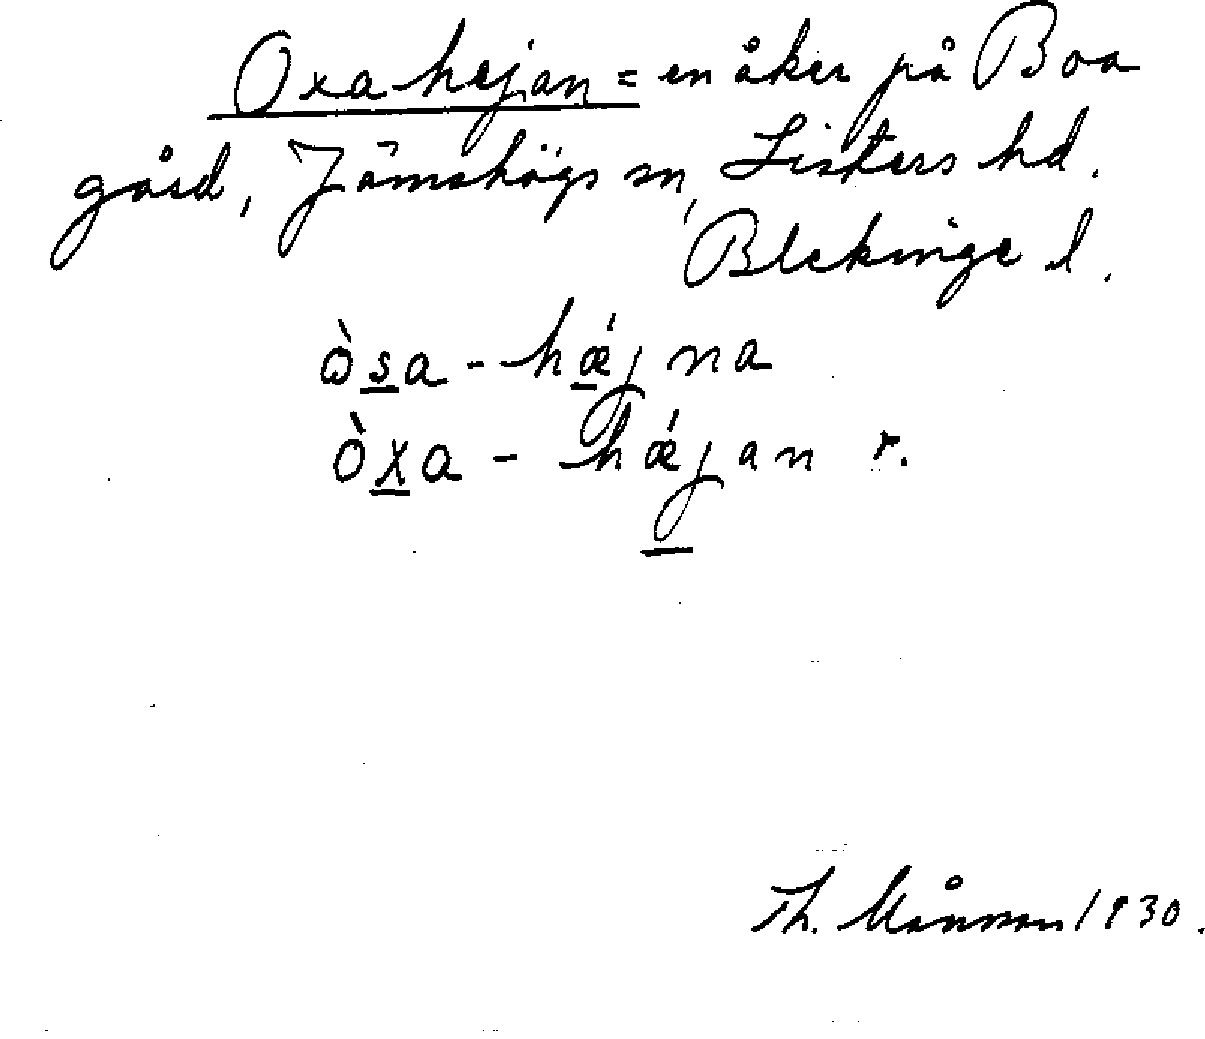 Oxahejan = en åker på Boa
gård, Jämshögs sn, Listers hd.
Blekinge l.
òsa - hǽjna
òxa - hǽjan r.
Th. Månsson 1930.